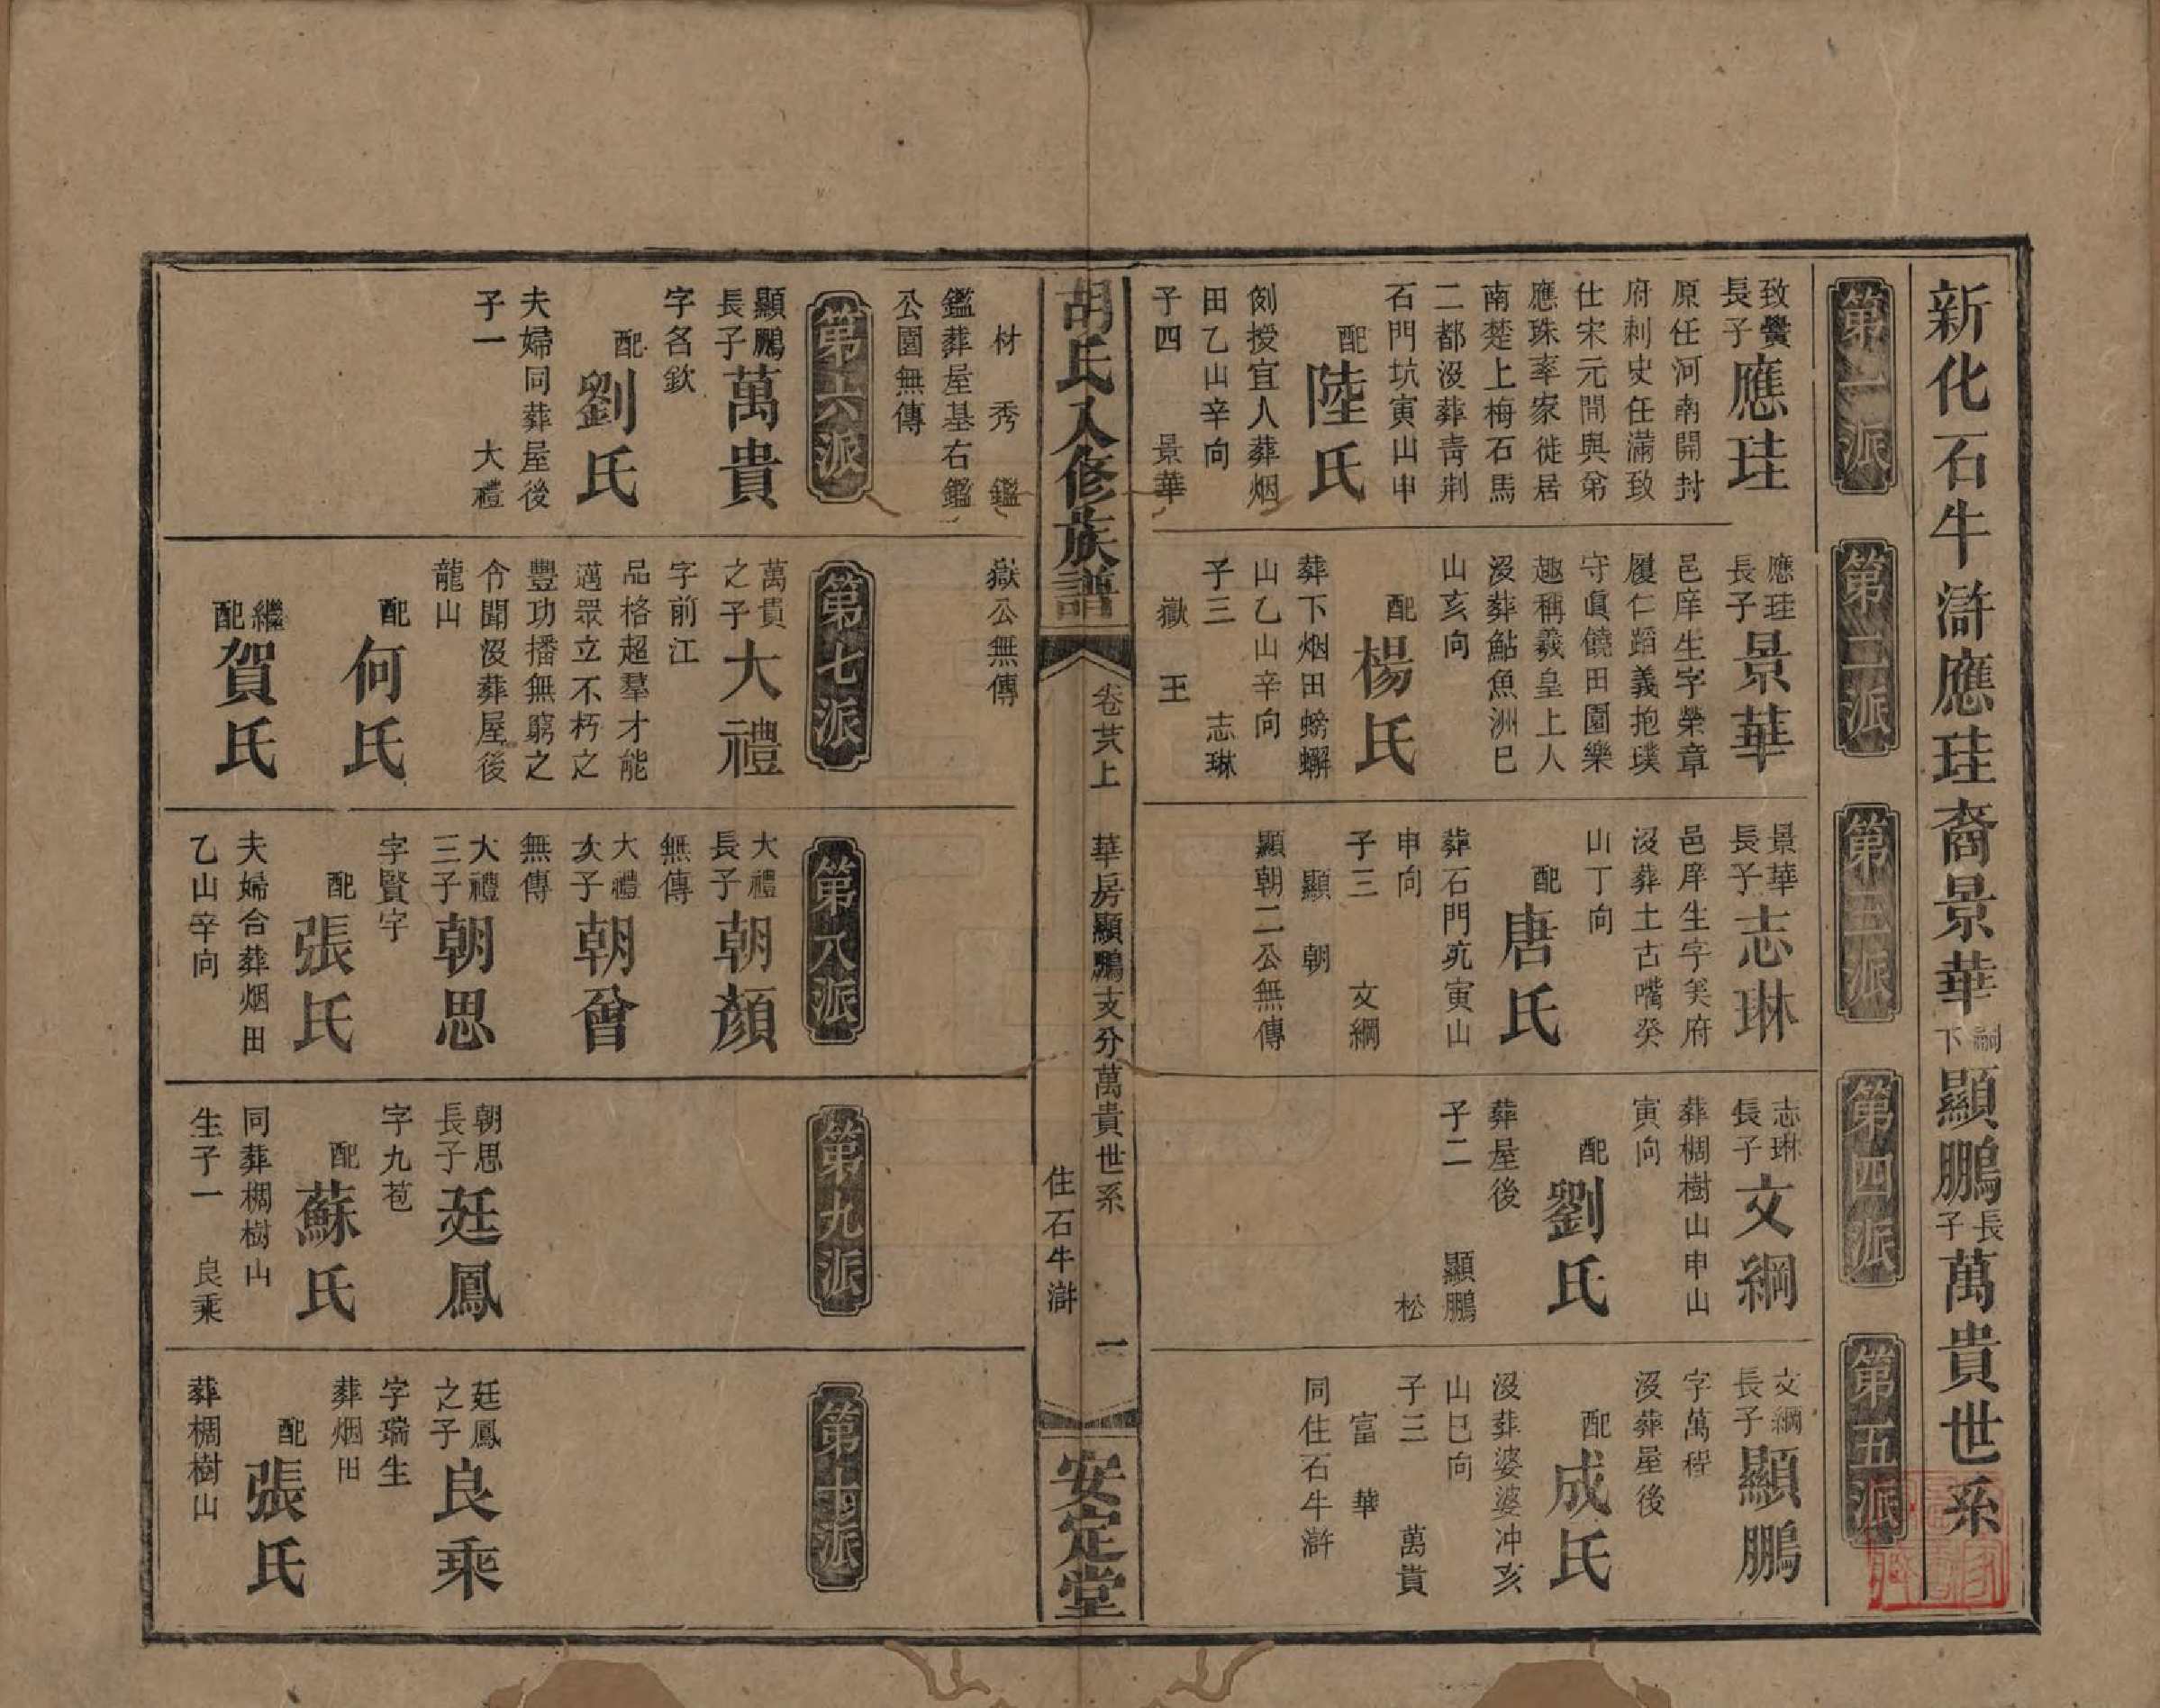 新化石牛滸應珪裔景華嗣下顯鵬長子萬貴世系
第一派
致黌長子應珪
原任河南開封
府刺史任滿致
仕宋元間與弟
應珠率家徙居
南楚上梅石馬
二都沒葬青荆
石門坑寅山申
配陸氏
例授宜人葬烟
田乙山辛向
子四 景華
嶽 王
第二派
應珪長子景華
邑庠生字榮章
履仁蹈義抱璞
守眞饒田園樂
趣稱羲皇上人
沒葬鮎魚洲巳
山亥向
配楊氏
葬下烟田螃蠏
山乙山辛向
子三 志琳
第三派
景華長子志琳
邑庠生字美府
沒葬土古嘴癸
山丁向
配唐氏
葬石門坑寅山
申向
子三 文綱
顯 朝
顯朝二公無傳
第四派
志琳長子文綱
葬椆樹山申山
寅向
配劉氏
葬屋後
子二 顯鵬
松
第五派
文綱長子顯鵬
字萬程
沒葬屋後
配成氏
沒葬婆婆冲亥
山巳向
子三 萬貴
富 華
同住石牛滸
胡氏八修族譜
卷廿八上 華房顯鵬支分萬貴世系
住石牛滸
一
安定堂
材 秀 鑑
鑑葬屋基右鑑
公園無傳
嶽公無傳
第六派
顯鵬長子萬貴
字名欽
配劉氏
夫婦同葬屋後
子一 大禮
第七派
萬貴之子大禮
字前江
品格超羣才能
邁眾立不朽之
豐功播無窮之
令聞沒葬屋後
龍山
配何氏
繼配賀氏
第八派
大禮長子朝顏
無傳
大禮次子朝曾
無傳
大禮三子朝思
字賢字
配張氏
夫婦合葬烟田
乙山辛向
第九派
朝思長子廷鳳
字九苞
配蘇氏
同葬椆樹山
生子一 良乘
第十派
廷鳳之子良乘
字瑞生
葬烟田
配張氏
葬椆樹山